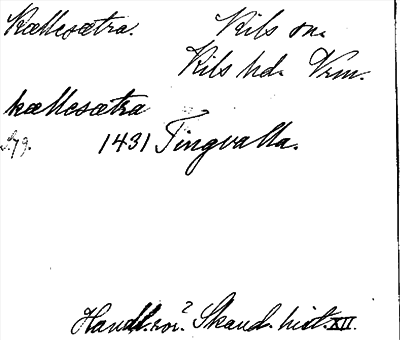 Kællesætra. Kils sn.
Kils hd. Vrm.
kællesætra
S. 79. 1431 Tingvalla.
Handl. rör. Skand. hist. XII.